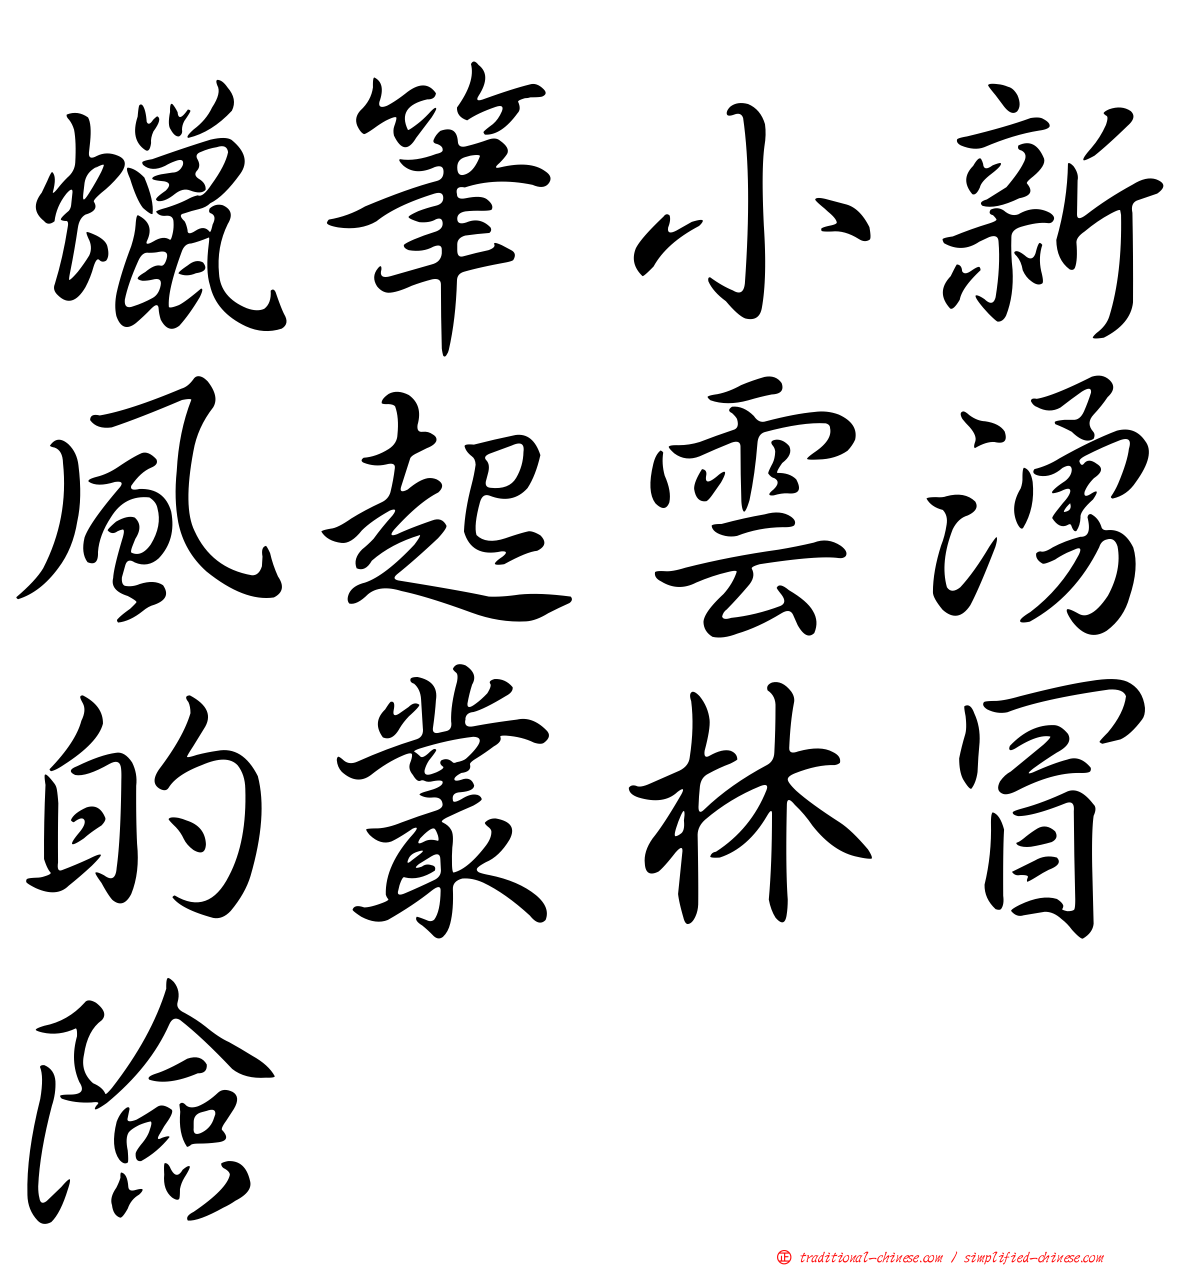 蠟筆小新
風起雲湧
的叢林冒
險
正 traditional-chinese.com / simplified-chinese.com